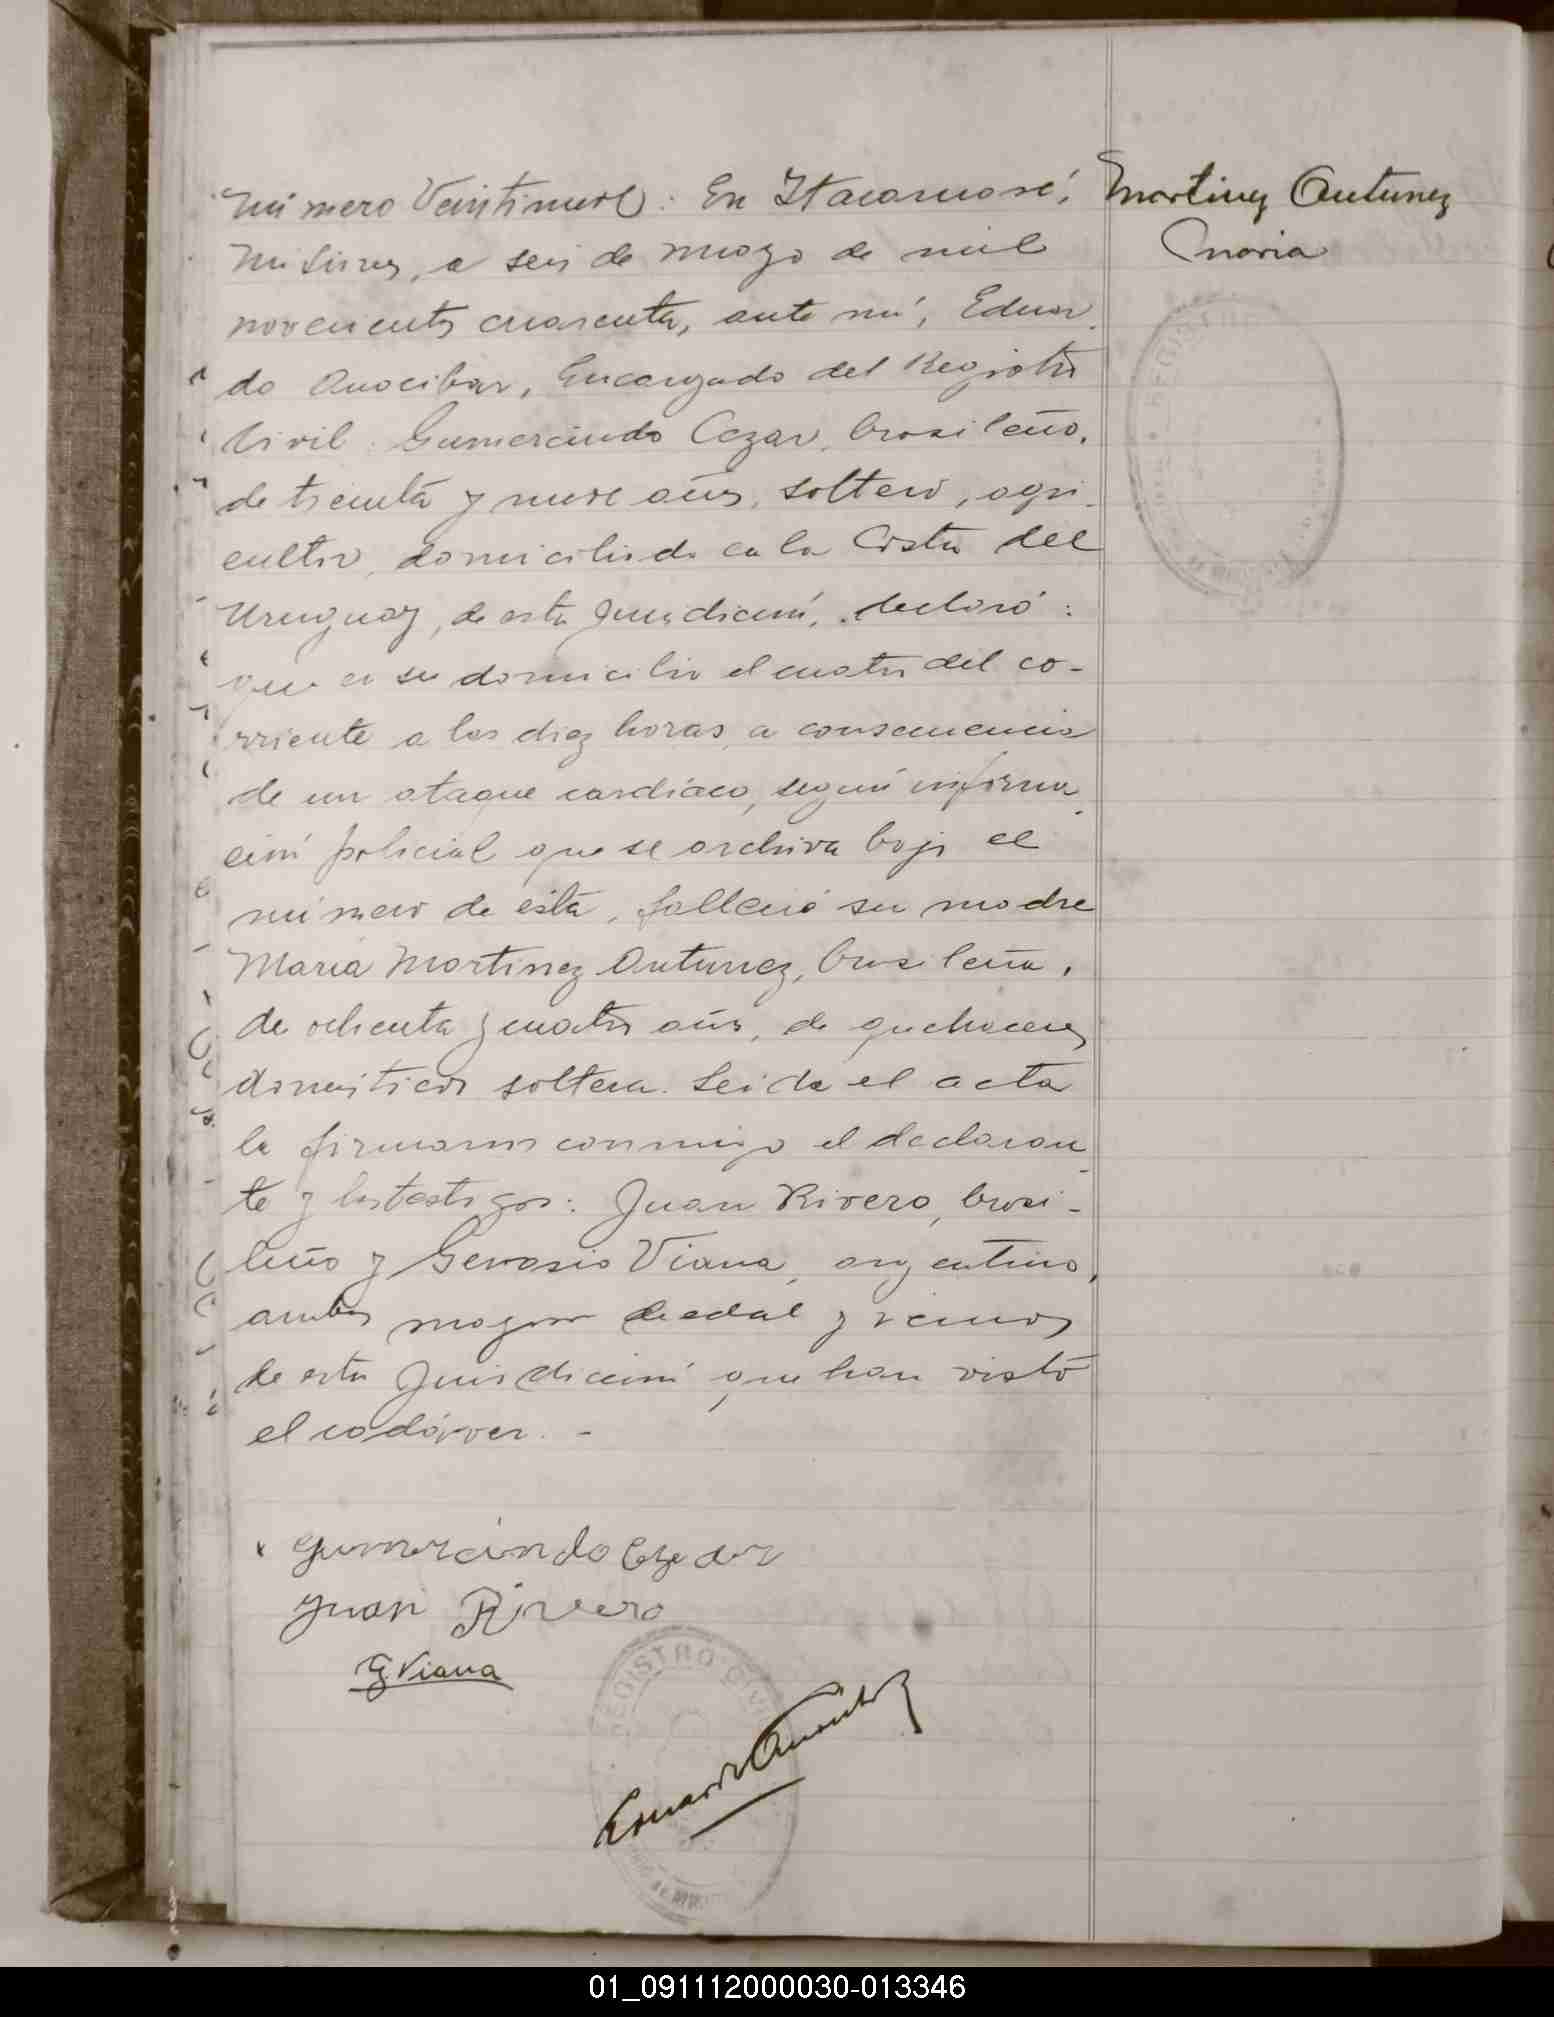 Número Veintinueve: En Itacaruaré,
Misiones, a seis de mayo de mil
novecientos cuarenta, ante mí, Eduar
do Anocibar, Encargado del Registro
Civil: Gumercindo Cezar, brasileño,
de treinta y nueve años, soltero, agri
cultor, domiciliado en la Costa del
Uruguay, de esta jurisdicción, declaró:
que en su domicilio el cuatro del co-
rriente a las diez horas, a consecuencia
de un ataque cardíaco, según informa
ción policial que se archiva bajo el
número de ésta, falleció su madre
María Martinez Antunez, brasileña,
de ochenta y cuatro años, de quehaceres
domésticos soltera. Leida el acta
la firmaron conmigo el declaran
te y los testigos: Juan Rivero, brasi-
leño y Gervasio Viana, argentino,
ambos mayores de edad y vecinos
de esta jurisdicción que han visto
el cadáver. -
Martinez Antunez
Maria
x Gumercindo
Juan Rivero
G Viana
REGISTRO CIVIL
Eduardo Anocibar
01_091112000030-013346